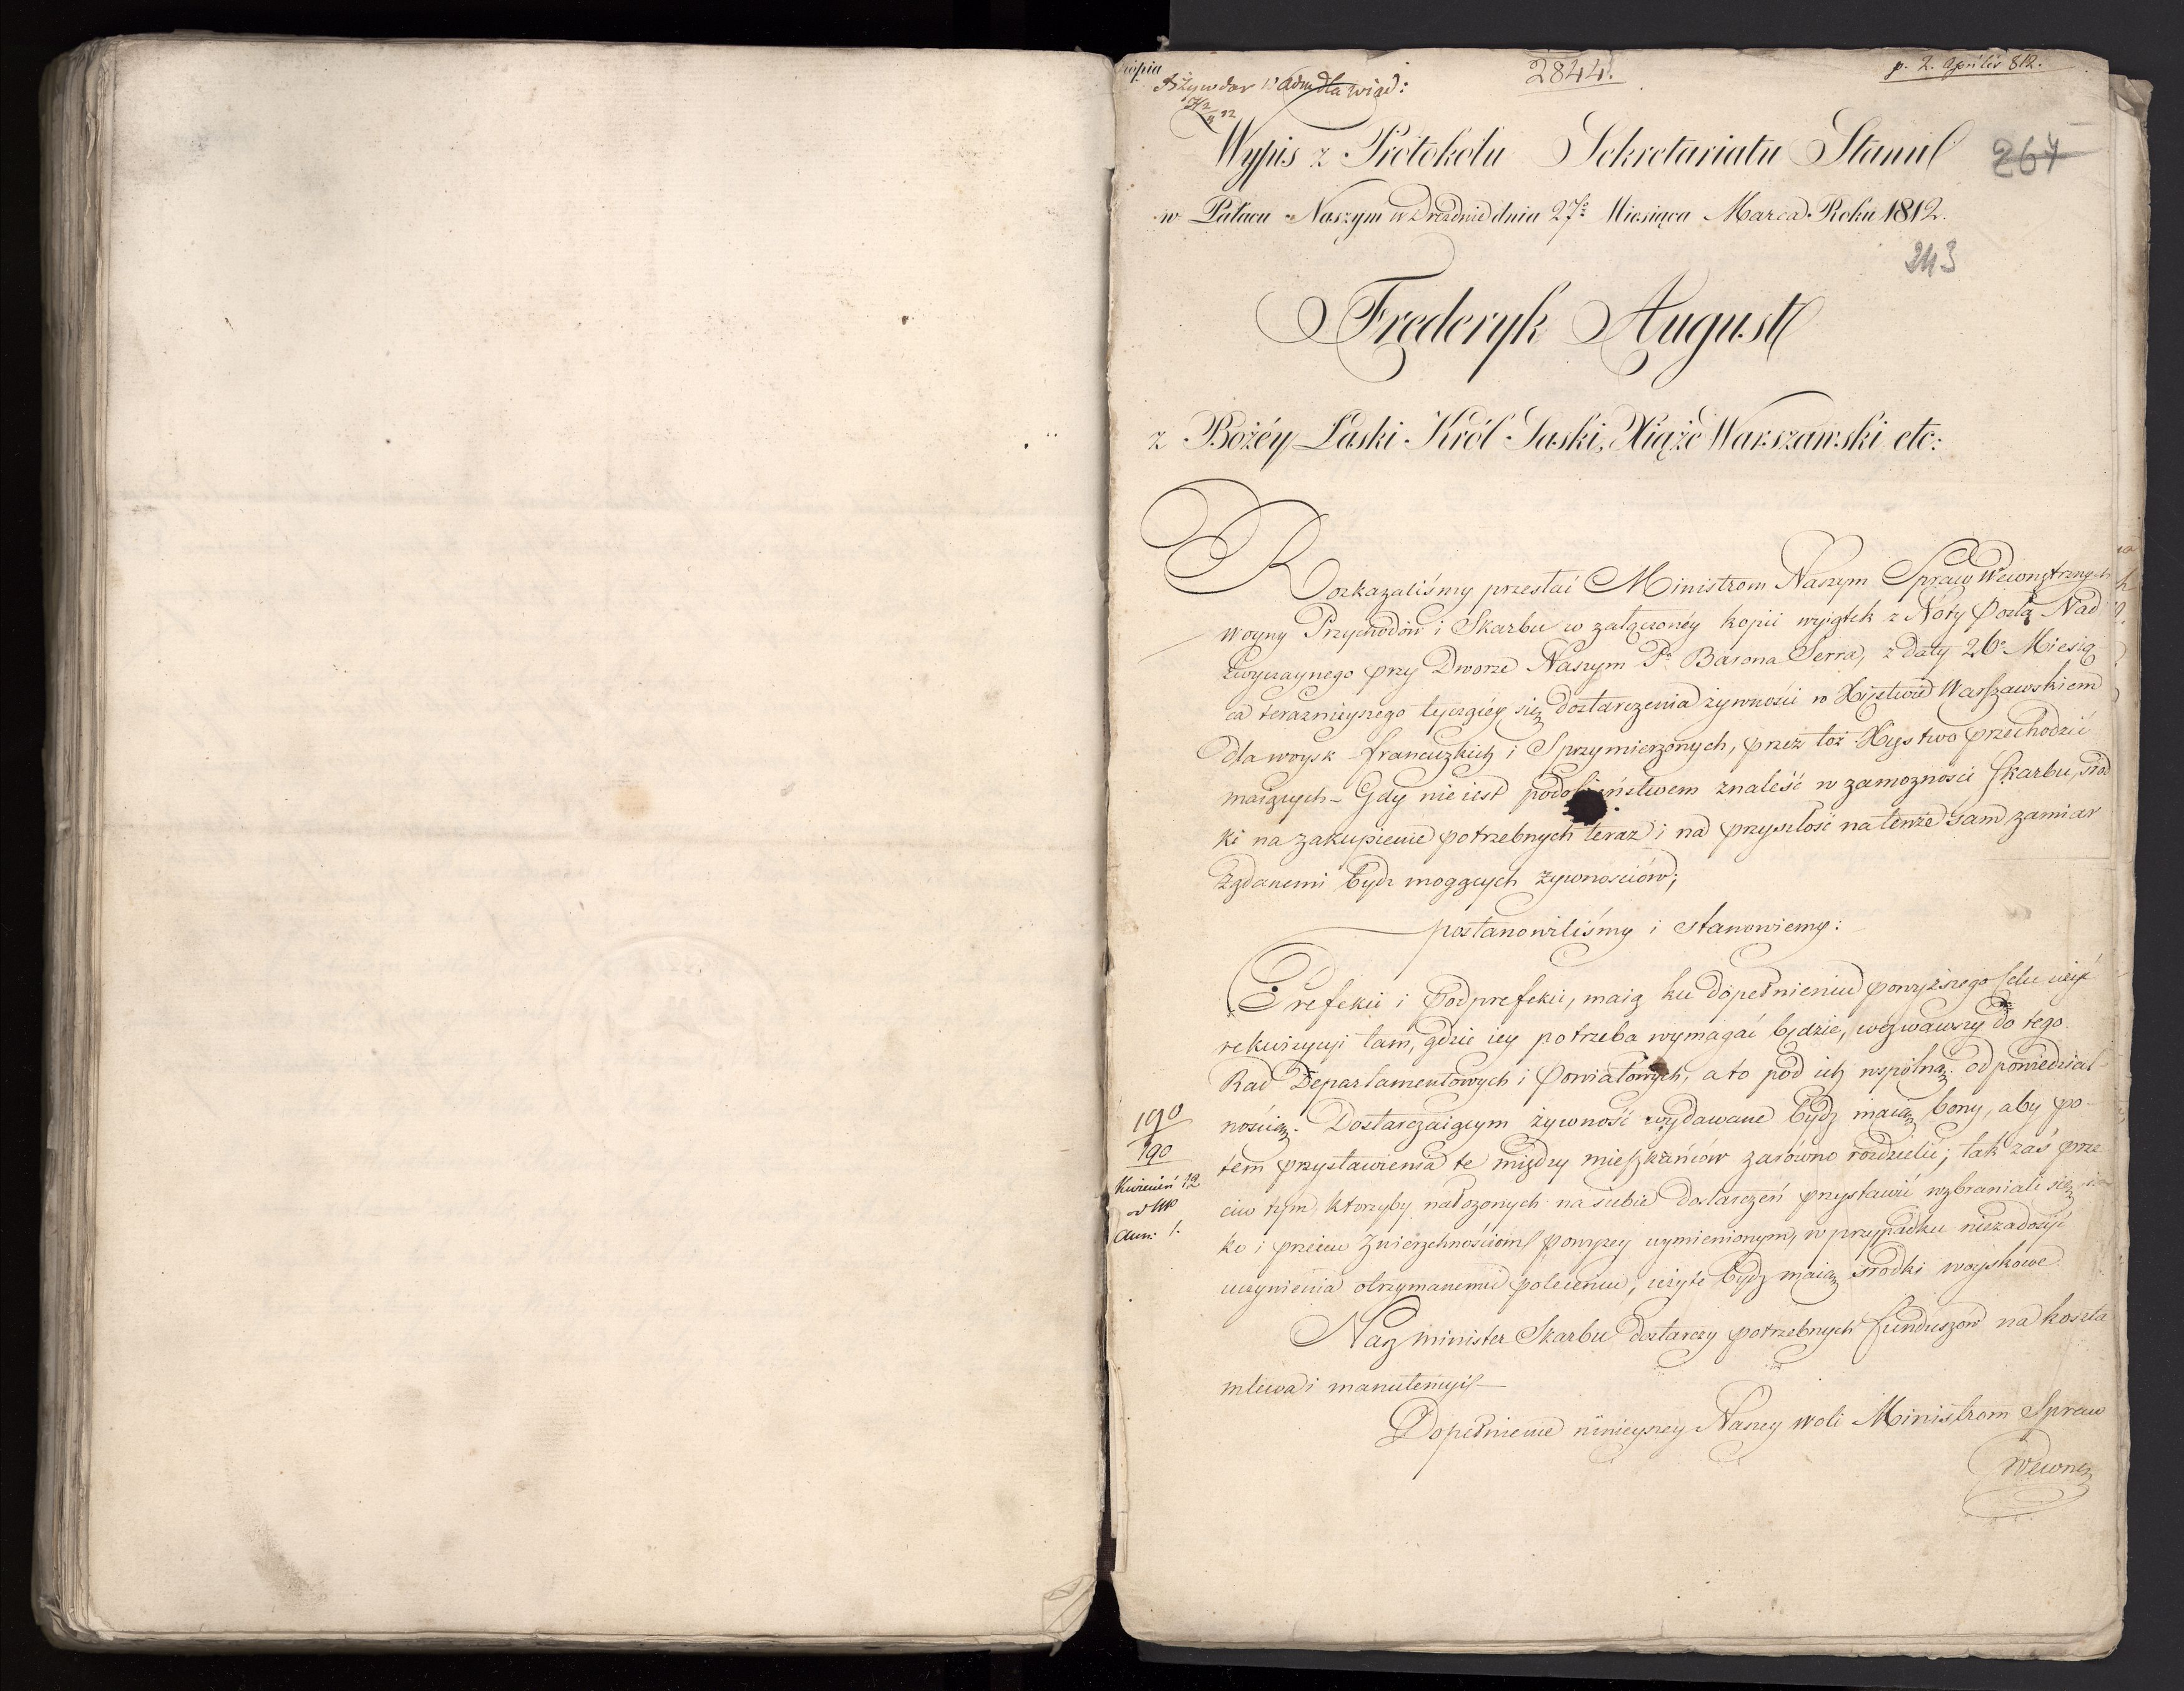 Kopia
2844.
p. 2. Aprilis 812.
Wypis z Protokołu Sekretariatu Stanu
267
w Pałacu Naszym w Dreźnie dnia 27º Miesiąca Marca Roku 1812.
243
Fryderyk August
z Bożéy Łaski Król Saski, Xiąże Warszawski etc:
Rozkazaliśmy przesłać Ministrom Naszym Spraw Wewnętrznych
Woyny Przychodów i Skarbu w załączonéy kopii wyiątek z Noty Posła Nad
zwyczaynego przy Dworze Naszym Pª Barona Serra, z daty 26º Miesią-
ca teraznieyszego tyczącéy się dostarczenia żywności w Xięztwie Warszawskiem
dla woysk francuzkich i Sprzymierzonych, przez toż Xięstwo przechodzić
maiących – Gdy nie iest podobieństwem znaleść w zamożności Skarbu, środ
ki na zakupienie potrzebnych teraz i na przyszłość na tenże sam zamiar
żądanemi bydz mogących żywnościów;
postanowiliśmy i stanowiemy:
Prefekci i Podprefekci, maią ku dopełnieniu powyższego Celu użyć
rekwizycyi tam, gdzie iey potrzeba wymagać będzie, wezwawszy do tego
Rad Departamentowych i Powiatowych, a to pod ich wspólną odpowiedzial-
nością. Dostarczaiącym żywność wydawane bydz maią bony, aby po-
190
190
tem przystawienia te między mieszkańców zarówno rozdzielić; tak zaś prze
Kwiecień 12
ciw tym, którzyby nałożonych na siebie dostarczeń przystawić wzbraniali się, ia
ko i przeciw Zwierzchnościom powyzey wymienionym, w przypadku niezadosyć
uczynienia otrzymanemu poleceniu, użyte bydz maią srodki woyskowe.
Nasz Minister Skarbu dostarczy potrzebnych funduszów na koszta
mlewa i manutencyi –
Dopełnienie ninieyszey Naszey woli Ministrom Spraw
Wewnę